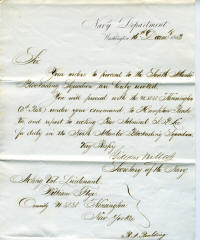 Navy Department
Washington 16th Decr 1862
Sir,
Your orders to proceed to the South Atlantic
Blockading Squadron are hereby revoked.
You will proceed with the U.S.S. Kensington
under your command to Hampton Roads
and report to Acting Rear Admiral S. P. Lee
for duty in the North Atlantic Blockading Squadron.
Very Resp'y
Gideon Welles
Secretary of the Navy
Acting Vol. Lieutenant
William
Comd'g U.S.S. Kensington
New York